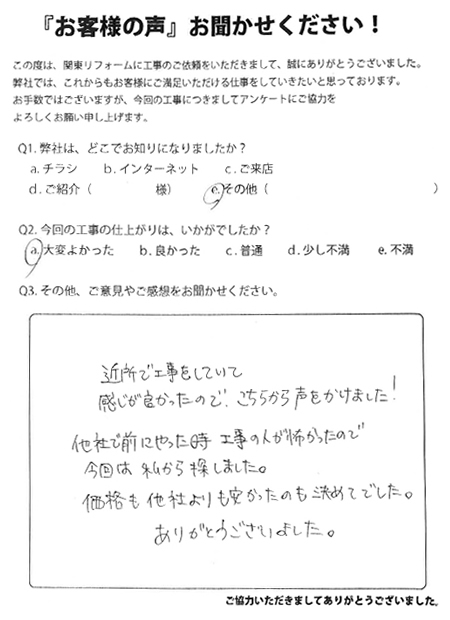 『お客様の声』お聞かせください！
この度は、関東リフォームに工事のご依頼をいただきまして、誠にありがとうございました。
弊社では、これからもお客様にご満足いただける仕事をしていきたいと思っております。
お手数ではございますが、今回の工事につきましてアンケートにご協力を
よろしくお願い申し上げます。
Q1. 弊社は、どこでお知りになりましたか？
a. チラシ　b. インターネット　c. ご来店
d. ご紹介（　　　　様）　e. その他（　　　　　　　　）
Q2. 今回の工事の仕上がりは、いかがでしたか？
a. 大変よかった　b. 良かった　c. 普通　d. 少し不満　e. 不満
Q3. その他、ご意見やご感想をお聞かせください。
近所で工事をしていて
感じが良かったので、こちらから声をかけました！
他社で前にやった時 工事の人が怖かったので
今回は 私から探しました。
価格も他社よりも安かったのも決めてでした。
ありがとうございました。
ご協力いただきましてありがとうございました。